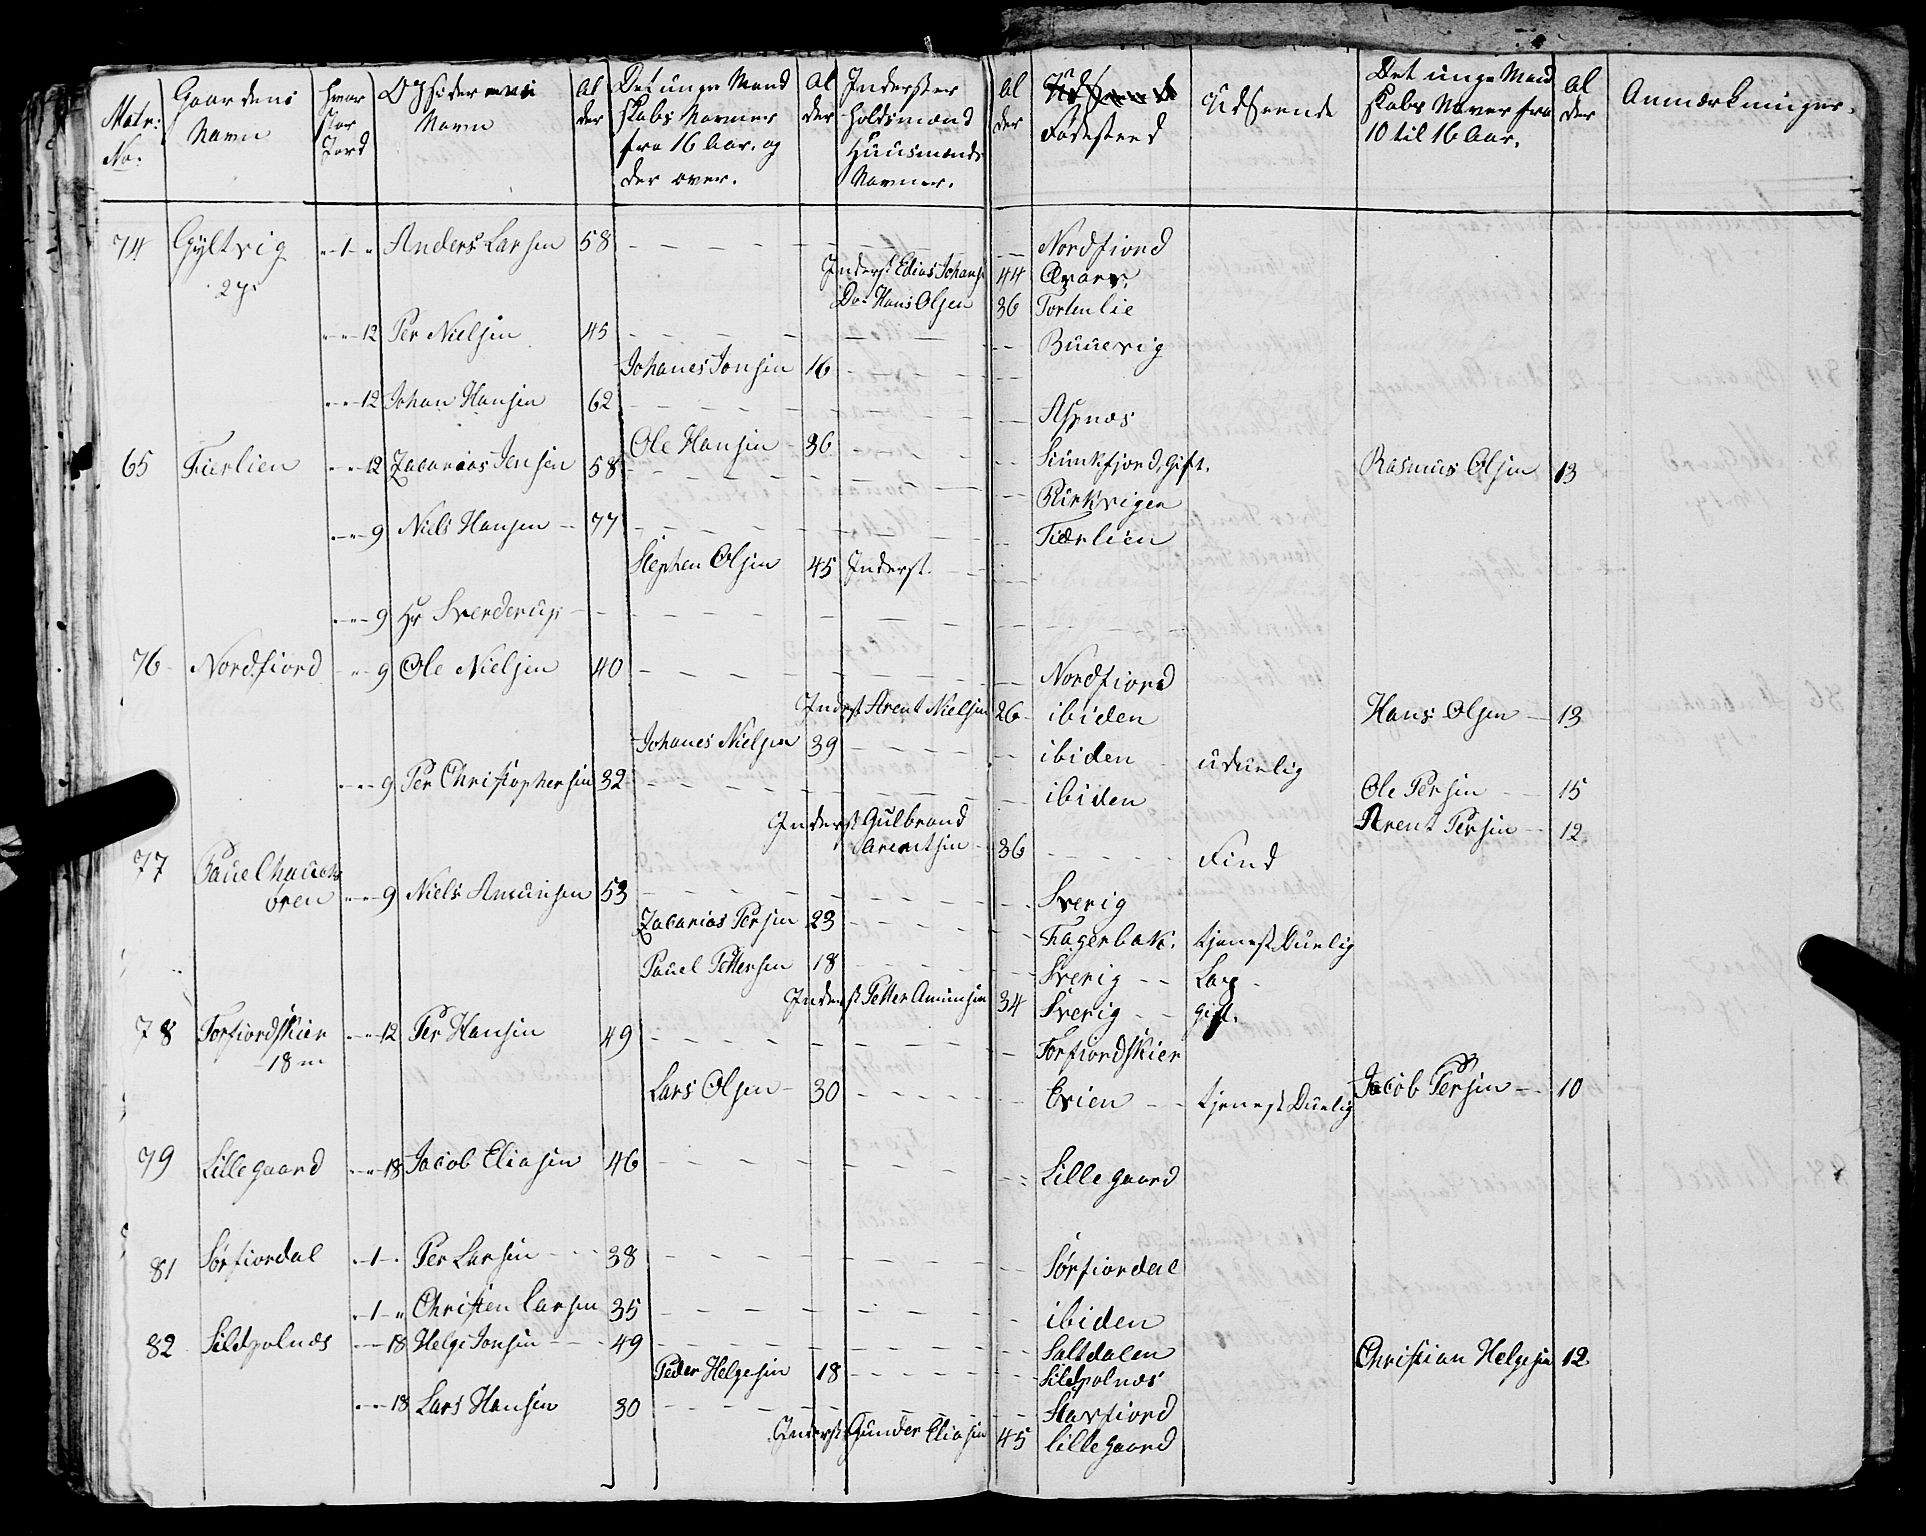 Matr: No. | Gaardens Navn | hvor stor Jord | Opsidernes Navn | Al der | Det unge Mand skabs Navner fra 16 Aar. og der over. | Al der | Inderster Holdsmænd Huusmænds Navner. | Al der | Fødested | Udseende | Det unge Mand skabs Naver fra 10 til 16 Aar. | Al der | Anmærkninger.
74 Gyltvig „-1-„ Anders Larsen 58 Nordfiord
27. Inderst Elias Johans 44
Do. Hans Olsen 36 Tortenlie
„-„-12 Per Nielsen 45
Johanes Jonsen 16
„-„-12 Johan Hansen 62 Aspnæs
Ole Hansen 36 Gift.
65 Fierlien „-„-12 Zacarias Jensen 58 Kirkvigen Rasmus Olsen 13
„-„-9 Niels Hansen 77 Fiærlien
Stephen Olsen 45 Inderst
„-„-9 Hr Sverderup
76 Nordfiord „-„-9 Ole Nielsen 40 Nordfiord
Inderst Arent Nielsen 26 ibiden Hans Olsen 13
Johanes Nielsen 39 ibiden uduelig
„-„-9 Per Christophersen 32 ibiden Ole Persen 15
Inderst Gulbrand Arent Persen 12
Arentsen 36 Find
77 Pauel
øren „-„-9 Niels Amunsen 53 Sverig
Zacarias Persen 23 Fagerbak. tjenest Duelig
Pauel Pettersen 18 Sverig Lap
Inderst Petter Amunsen 34 Sverig gift.
78 Torfiordskier „-„-12 Per Hansen 49 Torfiordskier
18 m
Lars Olsen 30 Evien tjenest Duelig Jacob Persen 10
79 Lillegaard „-„-18 Jacob Eliasen 46 Lillegaard
81 Sørfiordal „-1-„ Per Larsen 38 Sørfiordal
„-1-„ Christen Larsen 35 ibiden
82 Sildpolnæs „-„-18 Helge Jonsen 49 Saltdalen Christian Helgesen 12
Peder Helgesen 18 Sildpolnæs
„-„-18 Lars Hansen 30
Inderst Gunder Eliasen 45 Lillegaard